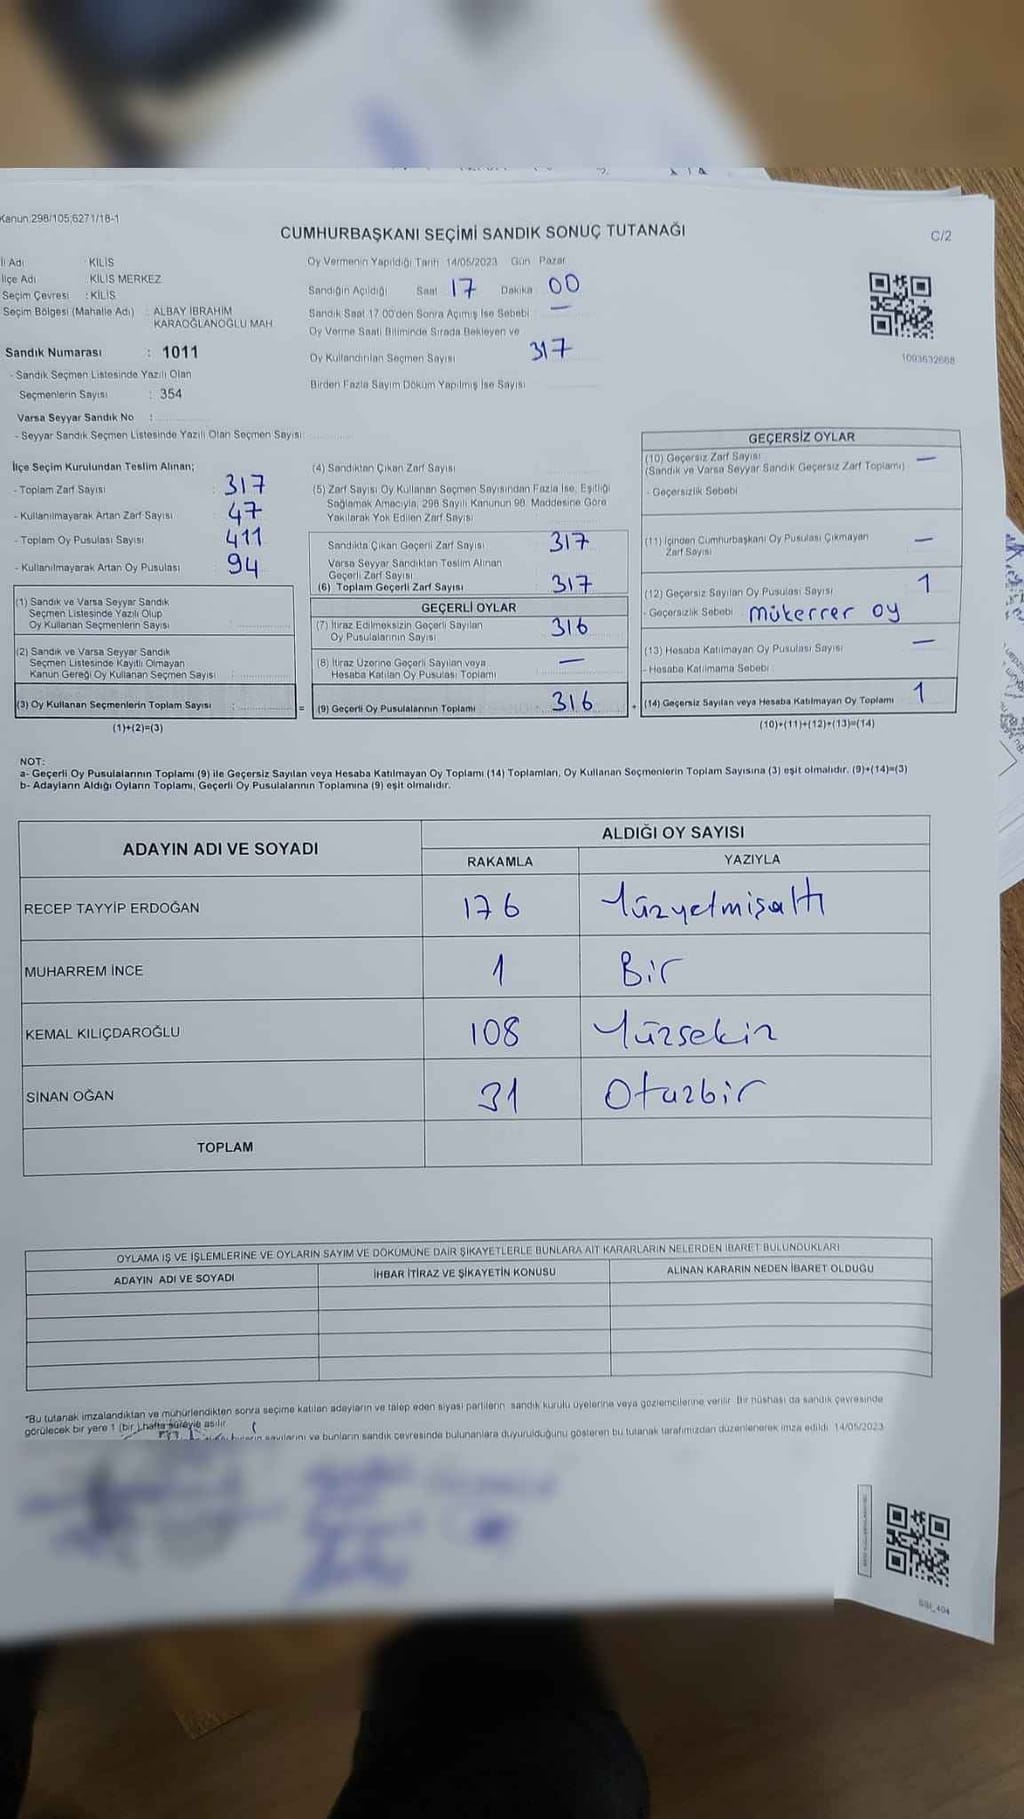 Kanun.298/105,6271/18-1
CUMHURBAŞKANI SEÇİMİ SANDIK SONUÇ TUTANAĞI
C/2
İl Adı : KİLİS
İlçe Adı : KİLİS MERKEZ
Seçim Çevresi : KİLİS
Seçim Bölgesi (Mahalle Adı) : ALBAY İBRAHİM
KARAOĞLANOĞLU MAH.
Sandık Numarası : 1011
- Sandık Seçmen Listesinde Yazılı Olan
Seçmenlerin Sayısı : 354
Varsa Seyyar Sandık No :
- Seyyar Sandık Seçmen Listesinde Yazılı Olan Seçmen Sayısı:
Oy Vermenin Yapıldığı Tarih 14/05/2023 Gün Pazar
Sandığın Açıldığı Saat 17 Dakika 00
Sandık Saat 17.00'den Sonra Açımış İse Sebebi —
Oy Verme Saati Bitiminde Sırada Bekleyen ve
Oy Kullandırılan Seçmen Sayısı 317
Birden Fazla Sayım Döküm Yapılmış İse Sayısı
1093632668
İlçe Seçim Kurulundan Teslim Alınan;
- Toplam Zarf Sayısı : 317
- Kullanılmayarak Artan Zarf Sayısı : 47
- Toplam Oy Pusulası Sayısı : 411
- Kullanılmayarak Artan Oy Pusulası : 94
(1) Sandık ve Varsa Seyyar Sandık
Seçmen Listesinde Yazılı Olup
Oy Kullanan Seçmenlerin Sayısı :
(2) Sandık ve Varsa Seyyar Sandık
Seçmen Listesinde Kayıtlı Olmayan
Kanun Gereği Oy Kullanan Seçmen Sayısı :
(3) Oy Kullanan Seçmenlerin Toplam Sayısı : =
(1)+(2)=(3)
(4) Sandıktan Çıkan Zarf Sayısı
(5) Zarf Sayısı Oy Kullanan Seçmen Sayısından Fazla İse, Eşitliği
Sağlamak Amacıyla, 298 Sayılı Kanunun 98. Maddesine Göre
Yakılarak Yok Edilen Zarf Sayısı
Sandıkta Çıkan Geçerli Zarf Sayısı 317
Varsa Seyyar Sandıktan Teslim Alınan
Geçerli Zarf Sayısı
(6) Toplam Geçerli Zarf Sayısı 317
GEÇERLİ OYLAR
(7) İtiraz Edilmeksizin Geçerli Sayılan
Oy Pusulalarının Sayısı 316
(8) İtiraz Üzerine Geçerli Sayılan veya
Hesaba Katılan Oy Pusulası Toplamı —
(9) Geçerli Oy Pusulalarının Toplamı 316 +
GEÇERSİZ OYLAR
(10) Geçersiz Zarf Sayısı —
(Sandık ve Varsa Seyyar Sandık Geçersiz Zarf Toplamı)
- Geçersizlik Sebebi
(11) İçinden Cumhurbaşkanı Oy Pusulası Çıkmayan
Zarf Sayısı —
(12) Geçersiz Sayılan Oy Pusulası Sayısı 1
- Geçersizlik Sebebi mükerrer oy
(13) Hesaba Katılmayan Oy Pusulası Sayısı —
- Hesaba Katılmama Sebebi
(14) Geçersiz Sayılan veya Hesaba Katılmayan Oy Toplamı 1
(10)+(11)+(12)+(13)=(14)
NOT:
a- Geçerli Oy Pusulalarının Toplamı (9) ile Geçersiz Sayılan veya Hesaba Katılmayan Oy Toplamı (14) Toplamları, Oy Kullanan Seçmenlerin Toplam Sayısına (3) eşit olmalıdır. (9)+(14)=(3)
b- Adayların Aldığı Oyların Toplamı, Geçerli Oy Pusulalarının Toplamına (9) eşit olmalıdır.
ADAYIN ADI VE SOYADI ALDIĞI OY SAYISI
RAKAMLA YAZIYLA
RECEP TAYYİP ERDOĞAN 176 Yüzyetmişaltı
MUHARREM İNCE 1 Bir
KEMAL KILIÇDAROĞLU 108 Yüzsekiz
SİNAN OĞAN 31 Otuzbir
TOPLAM
OYLAMA İŞ VE İŞLEMLERİNE VE OYLARIN SAYIM VE DÖKÜMÜNE DAİR ŞİKAYETLERLE BUNLARA AİT KARARLARIN NELERDEN İBARET BULUNDUKLARI
ADAYIN ADI VE SOYADI İHBAR İTİRAZ VE ŞİKAYETİN KONUSU ALINAN KARARIN NEDEN İBARET OLDUĞU
*Bu tutanak imzalandıktan ve mühürlendikten sonra seçime katılan adayların ve talep eden siyasi partilerin sandık kurulu üyelerine veya gözlemcilerine verilir. Bir nüshası da sandık çevresinde
görülecek bir yere 1 (bir) hafta süreyle asılır.
sayılarını ve bunların sandık çevresinde bulunanlara duyurulduğunu gösteren bu tutanak tarafımızdan düzenlenerek imza edildi. 14/05/2023